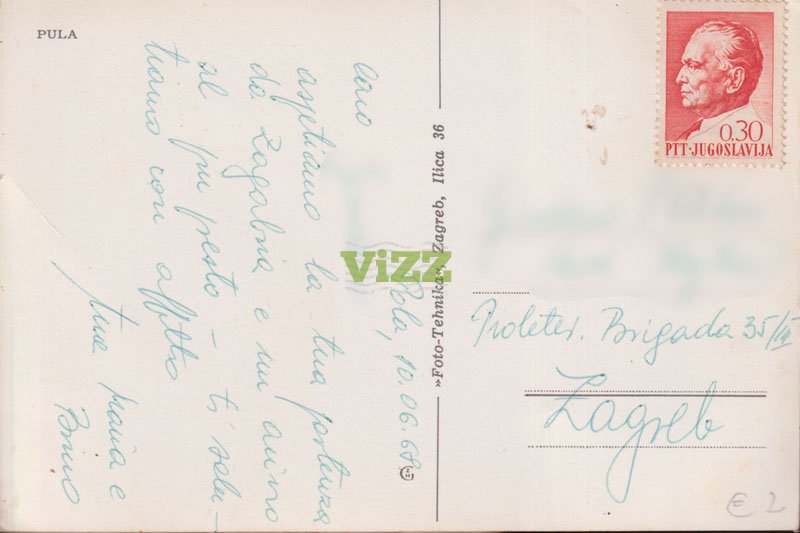 PULA
Pola, 10.06.68
Caro
aspettiamo la tua partenza
da Zagabria e un arrivo
al piu presto - ti salu-
tiamo con affetto
tua Maria e
Bruno
»Foto-Tehnika«, Zagreb, Ilica 36
VIZZ
0.30
PTT·JUGOSLAVIJA
Proleter. Brigada 35/IV
Zagreb
€ 2